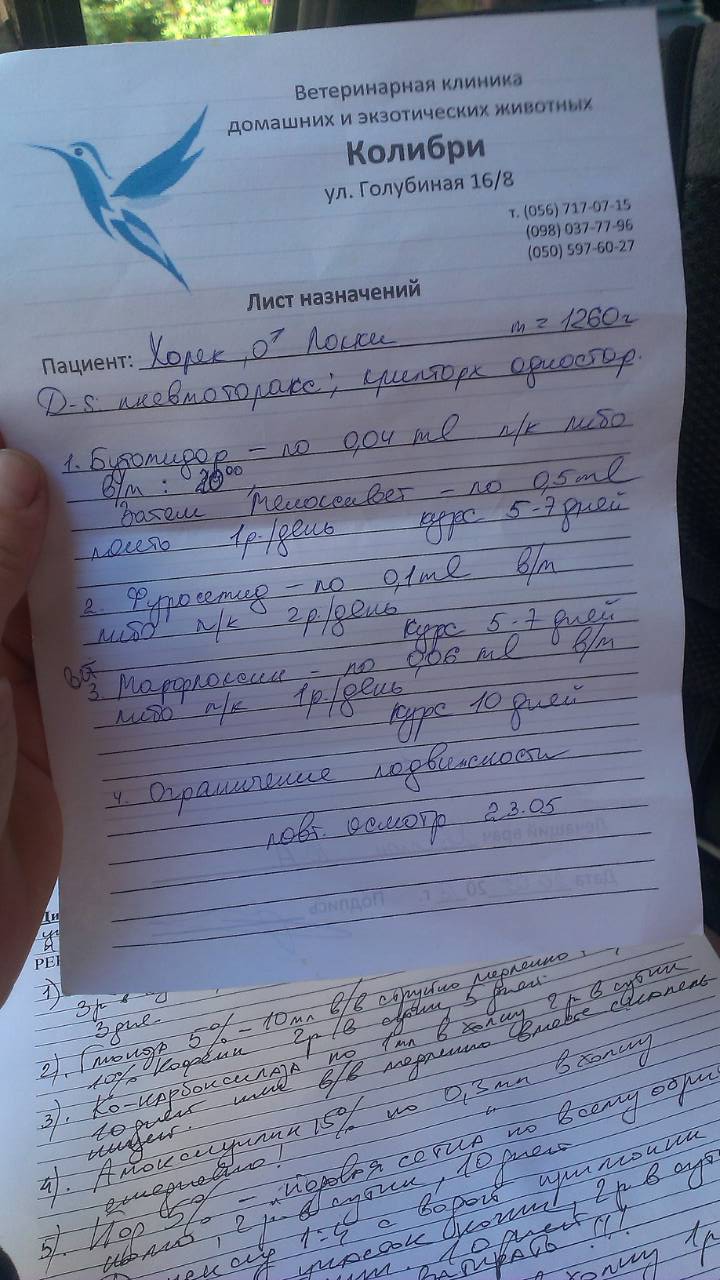 Ветеринарная клиника
домашних и экзотических животных
Колибри
ул. Голубиная 16/8
т. (056) 717-07-15
(098) 037-77-96
(050) 597-60-27
Лист назначений
Пациент: Хорек, ♂ Локи m = 1260г
D-s: пневмоторакс; крипторх одностор.
1. Бутомидор – по 0,04 ml п/к либо
в/м : 20⁰⁰
Затем Мелоксивет – по 0,5 ml
1р./день курс 5-7 дней
2. Фуросемид – по 0,1 ml в/м
либо п/к 2р./день
курс 5-7 дней
3. Марфлоксин – по 0,06 ml в/м
либо п/к 1р./день
курс 10 дней
4. Ограничение подвижности
повт. осмотр 23.05
Лечащий врач
Дата 20 г. Подпись
РЕ
1)
3 дня.
2). 5% – 10мл в/в струйно медленно
10% Кофеин 2р в сутки, 5 дней.
3). Ко-карбоксилаза по 1мл в холку 2р в сутки
10 дней или в/в медленно вместе с
4). Амоксициллин 15% по 0,3мл в холку
ежедневно!
5). Йод 5% – йодовая сетка по всему
2р в сутки, 10 дней
1:4 с водой примочки
участок кожи, 2р в
10 дней
!!!
холку 1р